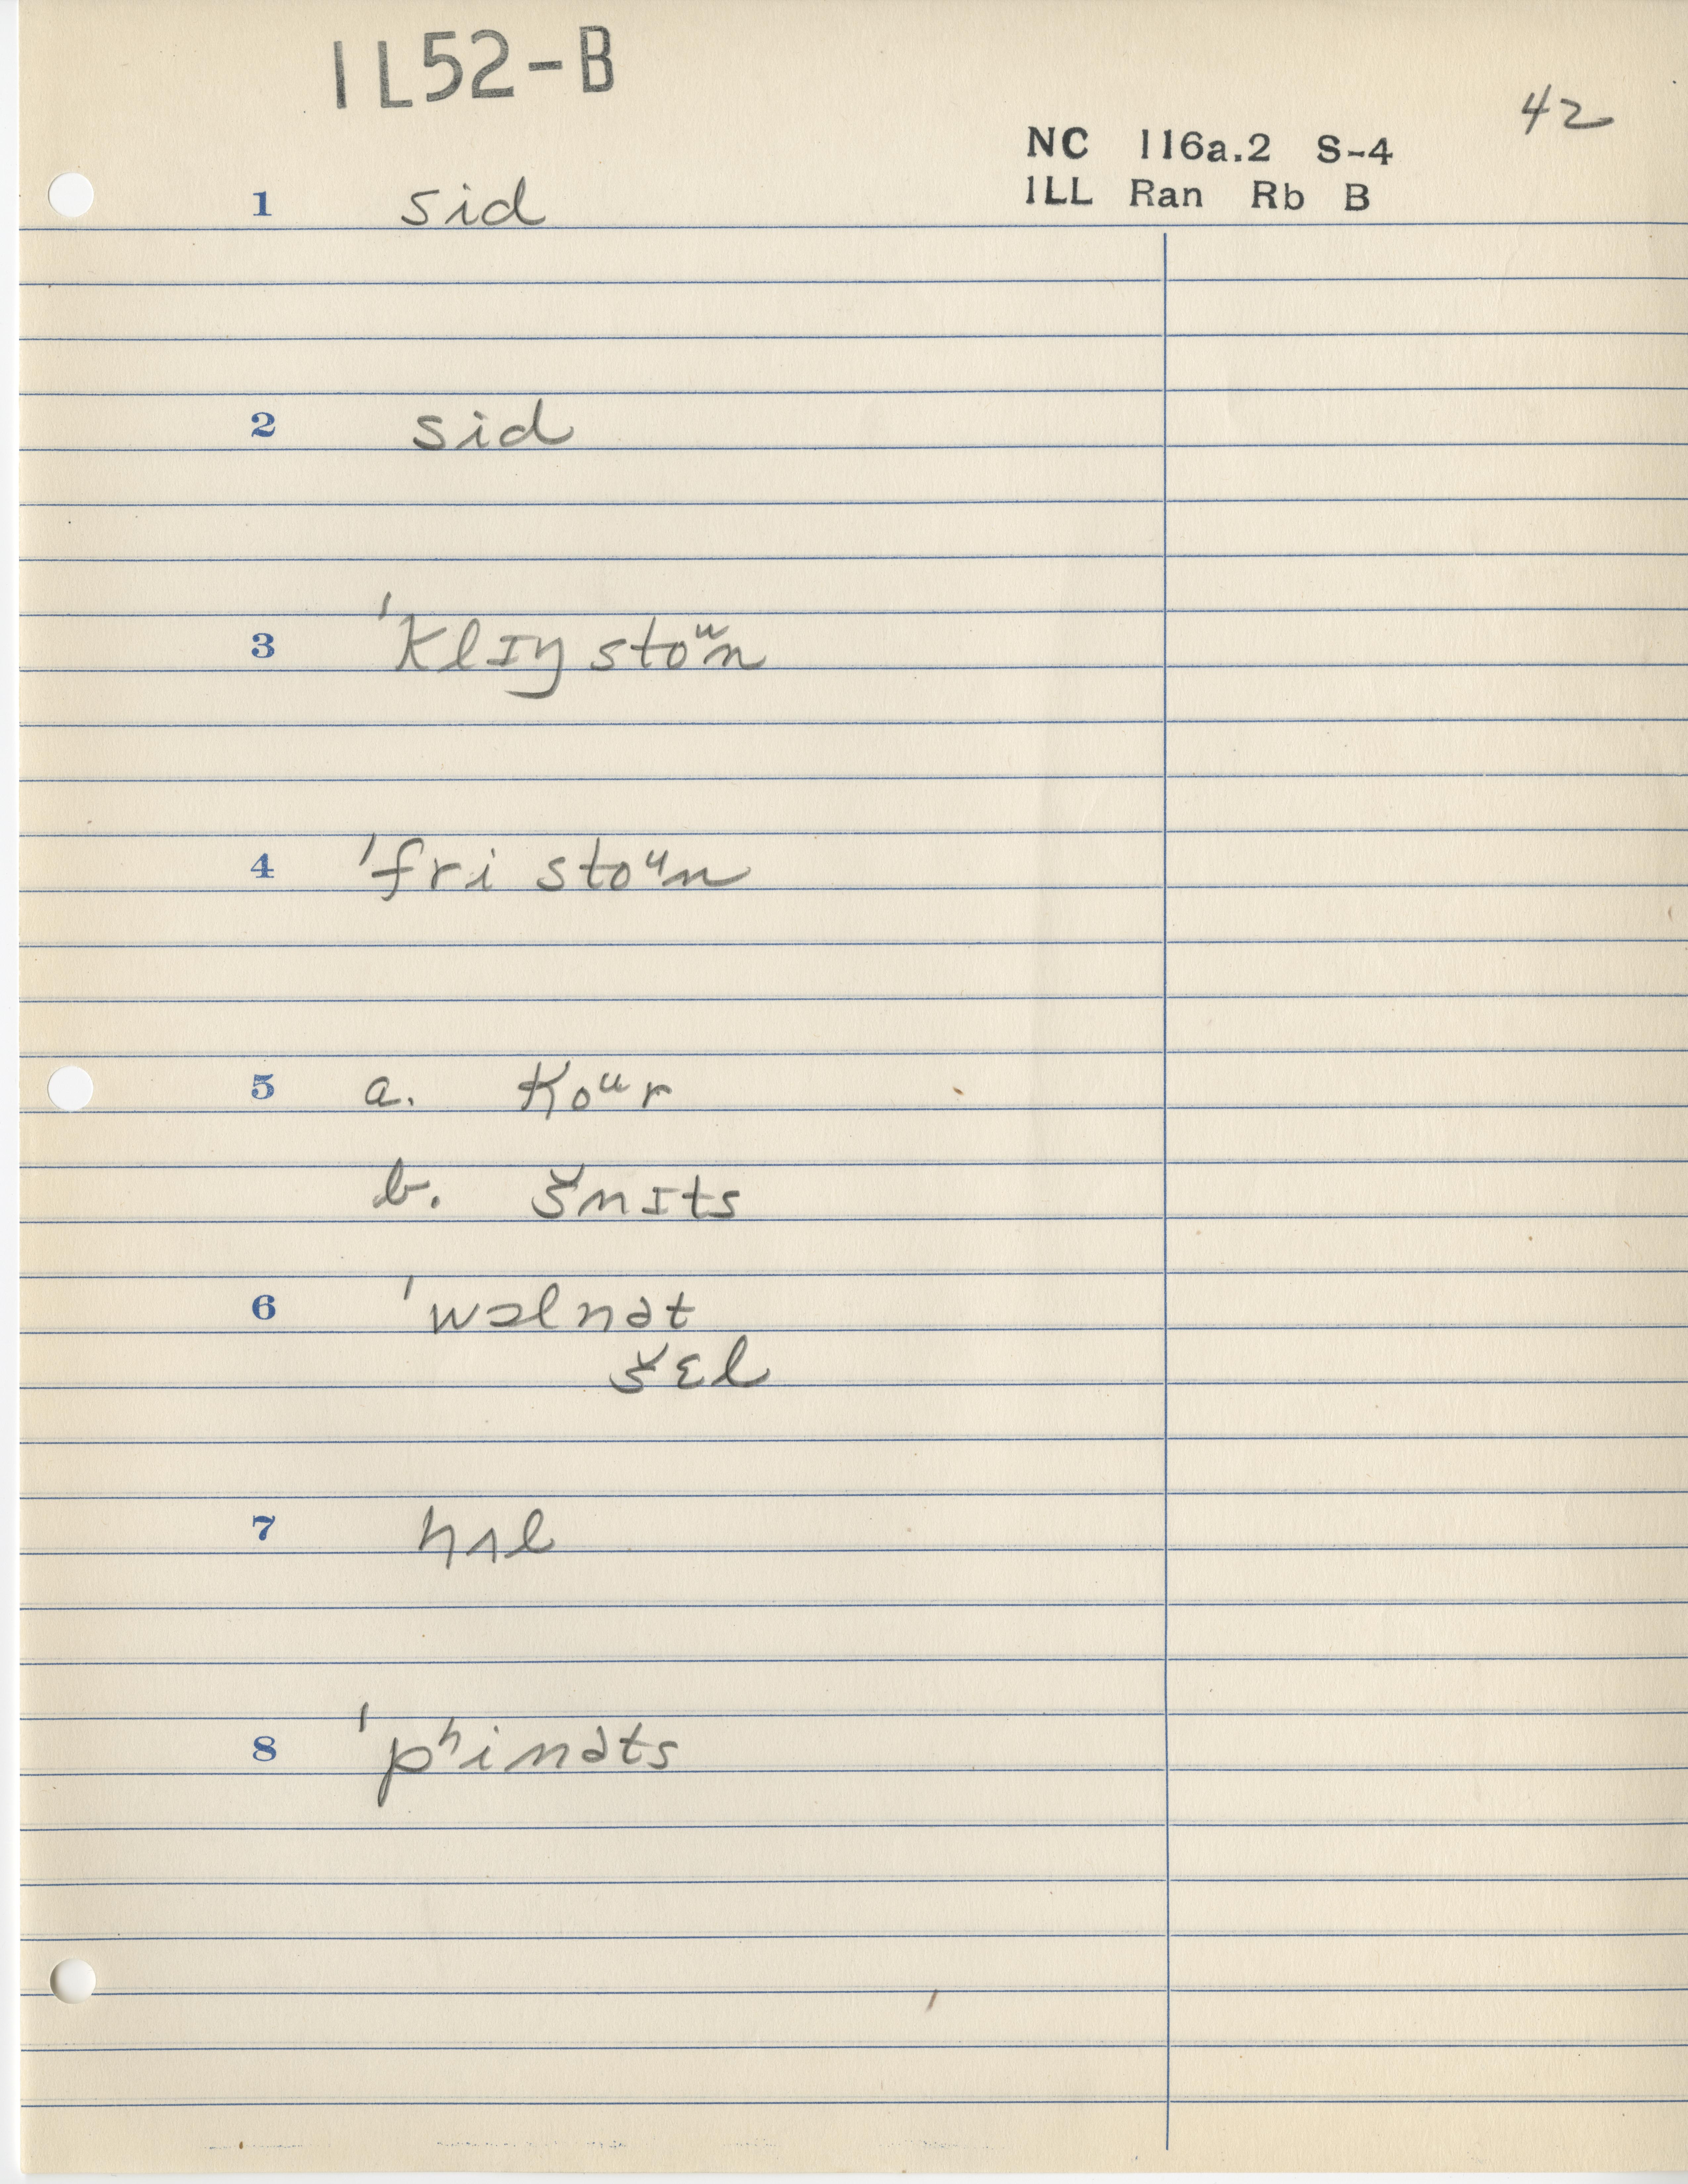 IL52-B
42
NC 116a.2 S-4
ILL Ran Rb B
1 sid
2 sid
3 ˈklɪŋ stoᵘn
4 ˈfri stoᵘn
5 a. koᵘr
b. s̆nɪts
6 ˈwɔlnət
s̆ɛl
7 hʌl
8 ˈpʰinəts